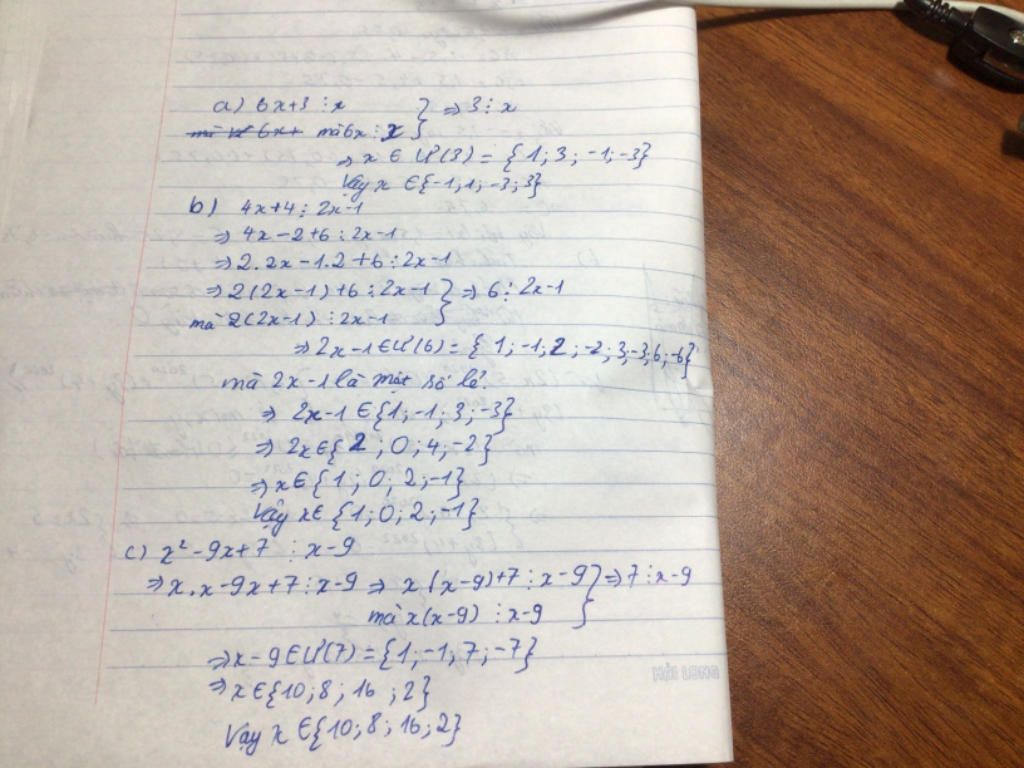 a) 6x+3 ⋮ x } ⇒ 3 ⋮ x
mà 6x ⋮ x
⇒ x ∈ Ư(3) = {1; 3; -1; -3}
Vậy x ∈ {-1; 1; -3; 3}
b) 4x+4 ⋮ 2x-1
⇒ 4x-2+6 ⋮ 2x-1
⇒ 2.2x-1.2+6 ⋮ 2x-1
⇒ 2(2x-1)+6 ⋮ 2x-1 } ⇒ 6 ⋮ 2x-1
mà 2(2x-1) ⋮ 2x-1
⇒ 2x-1 ∈ Ư(6) = {1; -1; 2; -2; 3; -3; 6; -6}
mà 2x-1 là một số lẻ.
⇒ 2x-1 ∈ {1; -1; 3; -3}
⇒ 2x ∈ {2; 0; 4; -2}
⇒ x ∈ {1; 0; 2; -1}
Vậy x ∈ {1; 0; 2; -1}
c) x² - 9x+7 ⋮ x-9
⇒ x.x-9x+7 ⋮ x-9 ⇒ x(x-9)+7 ⋮ x-9 } ⇒ 7 ⋮ x-9
mà x(x-9) ⋮ x-9
⇒ x-9 ∈ Ư(7) = {1; -1; 7; -7}
⇒ x ∈ {10; 8; 16; 2}
Vậy x ∈ {10; 8; 16; 2}